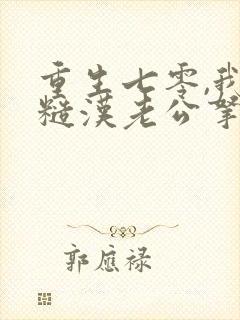 重生七零,我
糙汉老公宠
郭应禄